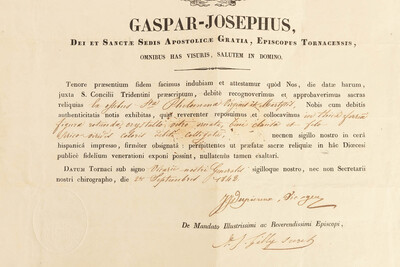 GASPAR-JOSEPHUS,
DEI ET SANCTÆ SEDIS APOSTOLICÆ GRATIA, EPISCOPUS TORNACENSIS,
OMNIBUS HAS VISURIS, SALUTEM IN DOMINO.
Tenore præsentium fidem facimus indubiam et attestamur quod Nos, die datæ harum,
juxta S. Concilii Tridentini præscriptum, debitè recognoverimus et approbaverimus sacras
reliquias ex ossibus Stæ Philomenæ Virginis et Martyris, Nobis cum debitis
authenticitatis notis exhibitas, quas reverenter reposuimus et collocavimus in
figuræ
coloris collegata, nenon sigillo nostro in cerâ
hispanicâ impresso, firmiter obsignatâ: permittentes ut præfatæ sacræ reliquiæ in hâc Diœcesi
publicè fidelium venerationi exponi possint, nullatenùs tamen exaltari.
DATUM TORNACI sub signo Vicarii nostri Generalis sigilloque nostro, nec non Secretarii
nostri chirographo, die Septembris 1848
De Mandato Illustrissimi ac Reverendissimi Episcopi,